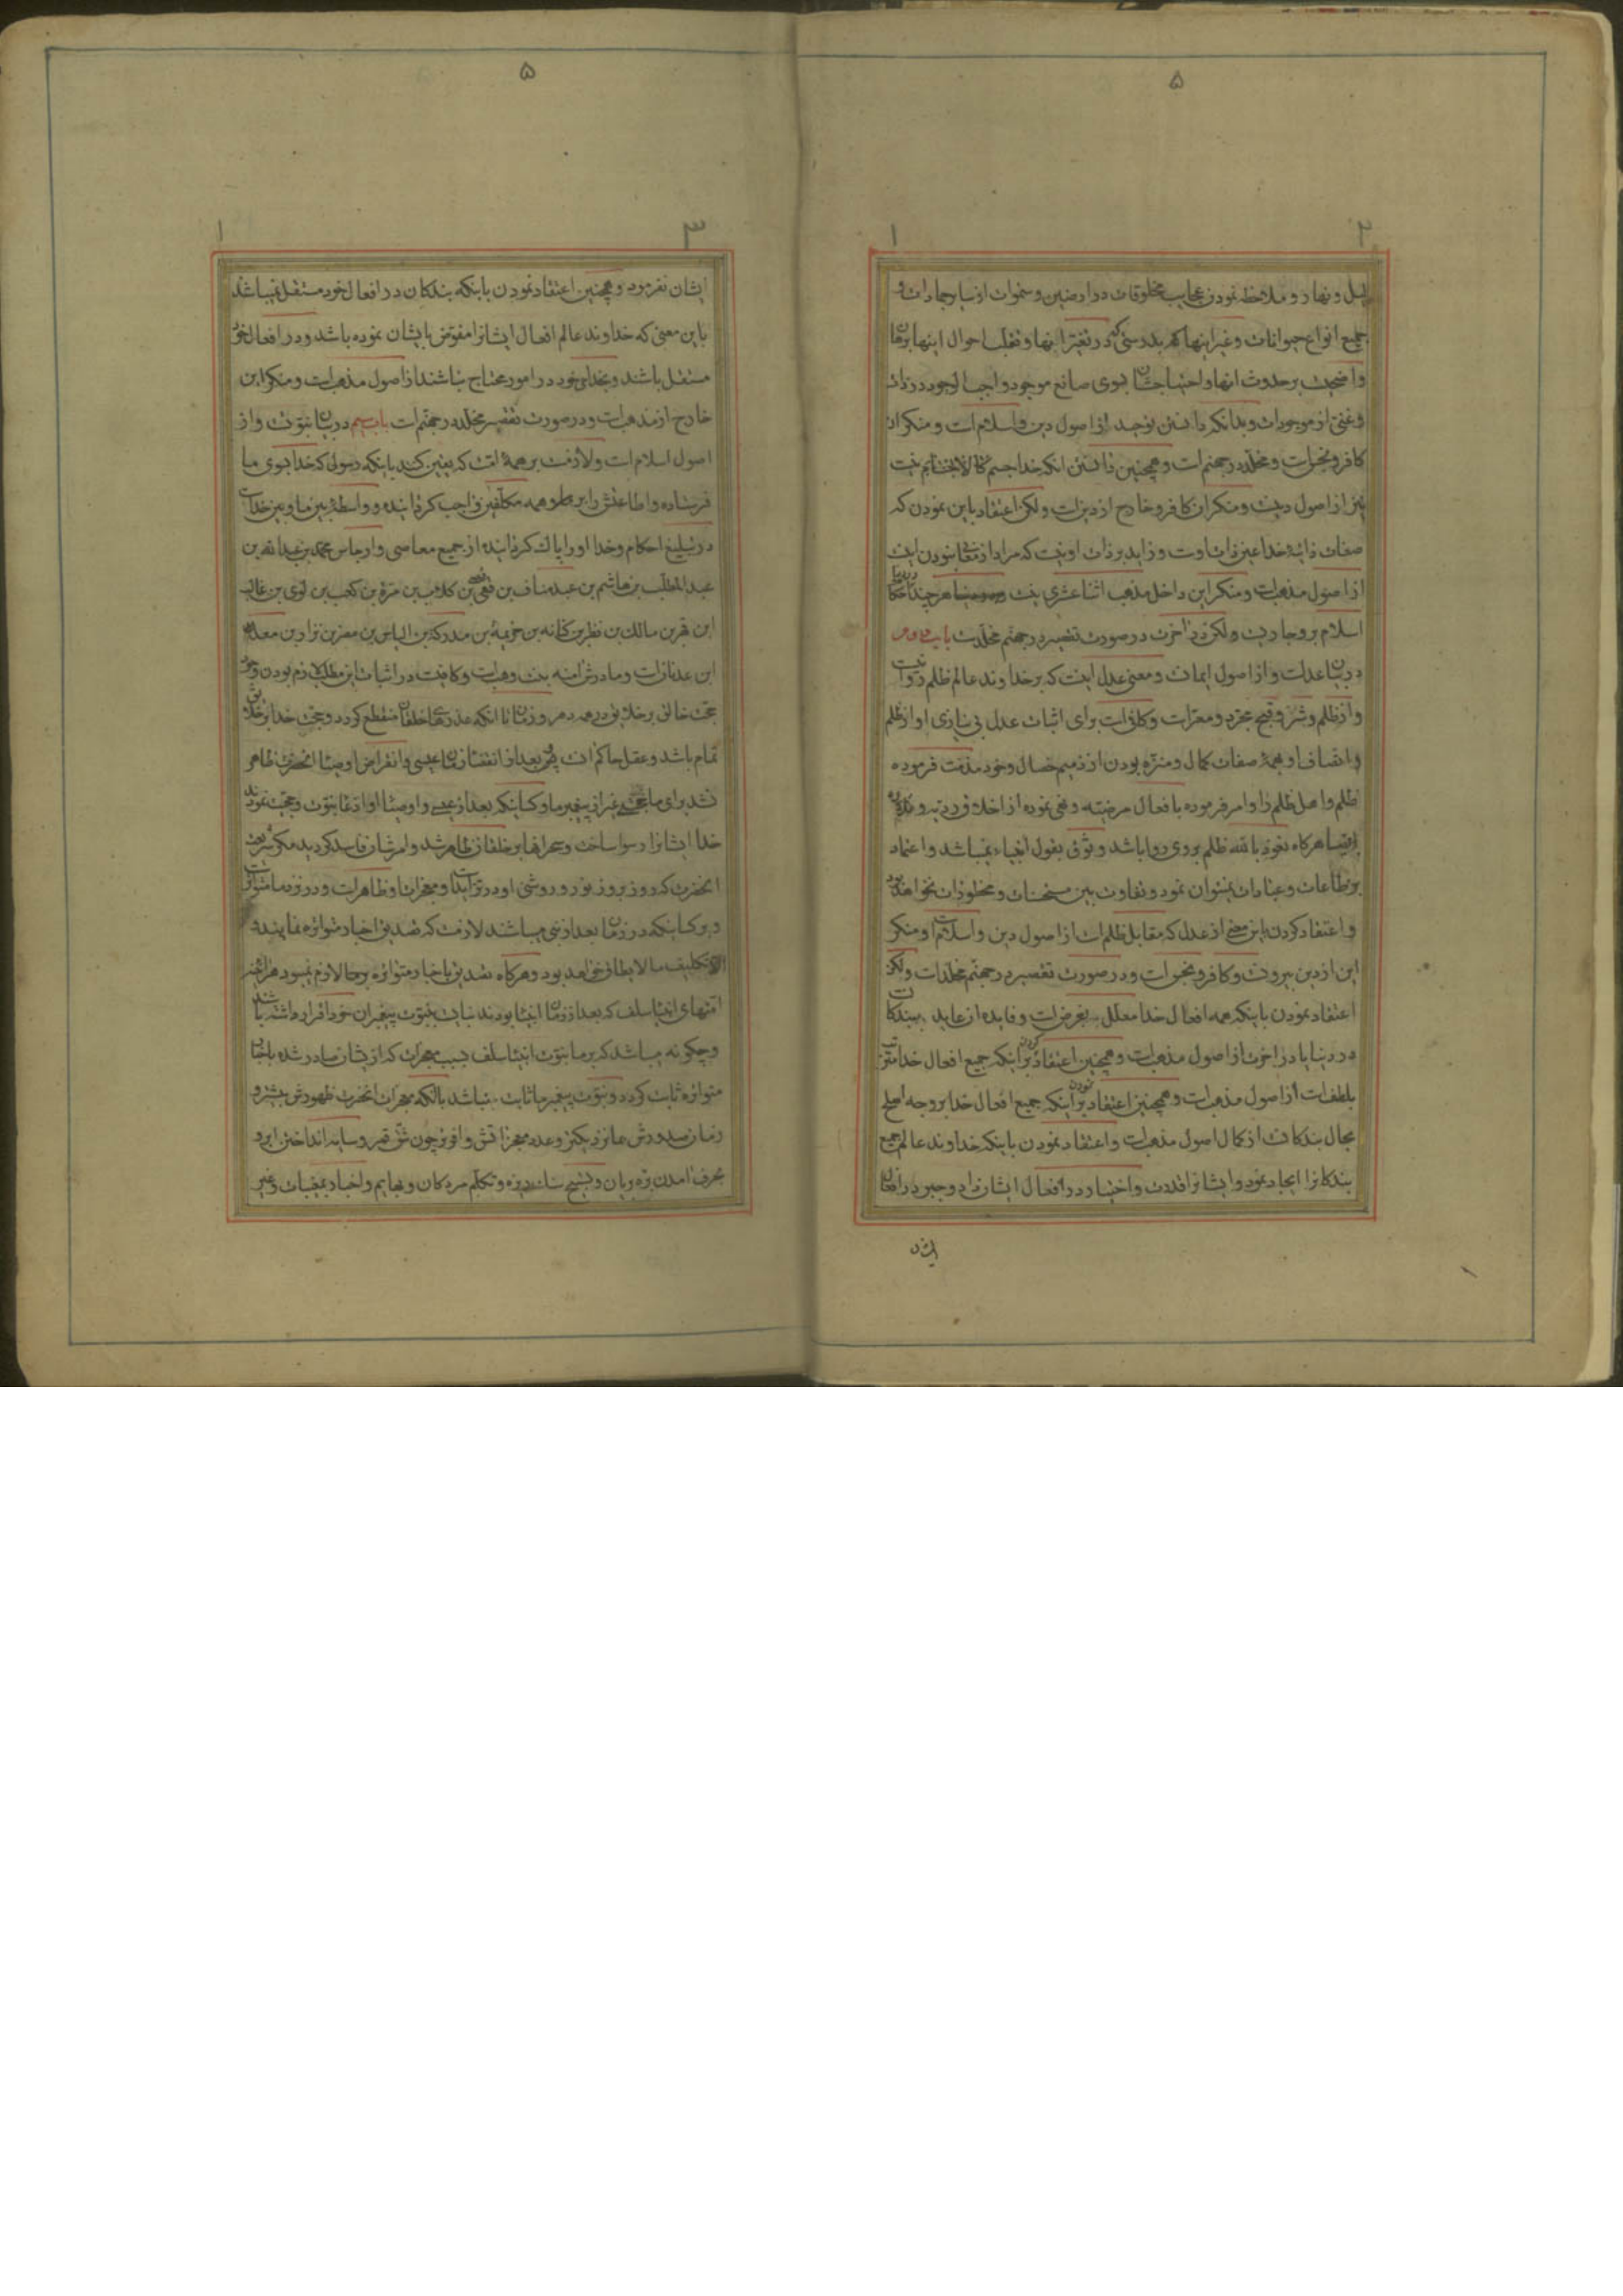 ۵
۲ ۱
لیل و نهار و ملاحظه نمودن عجایب مخلوقات در ارضین و سموات از سایر جمادات و
جمیع انواع حیوانات و غیر اینها که بدرستی که در تغیر اینها و تقلب احوال اینها برهان
واضحیست بر حدوث انها و احتیاجشان بسوی صانع موجود واجب الوجود در ذات
و غنی از موجودات و بدانکه دانستن توحید از اصول دین و اسلام است و منکر ان
کافر و نجس است و مخلد در جهنم است و همچنین دانستن انکه خدا جسم کالاجسام نیست
نیز از اصول دینست و منکر ان کافر و خارج از دین است ولکن اعتقاد باین نمودن که
صفات ذاتیه خدا عین ذات اوست و زاید بر ذات او نیست که مراد از معانی نبودن اینست
از اصول مذهب است و منکر این داخل مذهب اثنا عشری نیست هر چند احکام
اسلام بر او جاریست ولکن در اخرت در صورت تقصیر در جهنم مخلد است باب دوم
در بیان عدلست و از اصول ایمانست و معنی عدل اینست که بر خداوند عالم ظلم روا نیست
و از ظلم و شر و قبیح مبرّد و معراست و کافی است برای اثبات عدل بی نیازی او از ظلم
و اتصاف او بهمۀ صفات کمال و منزه بودن از ذمیم خصال و خود مذمت فرموده
ظلم و اهل ظلم را و امر فرموده بافعال مرضیه و نهی نموده از اخلاق ردیه
ایضا هرگاه نعوذ بالله ظلم بر وی روا باشد وثوق بقول انبیاء نمیباشد و اعتماد
بر طاعات و عبادات نمیتوان نمود و تفاوت بین مستحسنات و محظورات نخواهد بود
و اعتقاد کردن باین معنی از عدل که مقابل ظلم است از اصول دین و اسلام است و منکر
این از دین بیرونست و کافر و نجس است و در صورت تقصیر در جهنم مخلد است ولکن
اعتقاد نمودن باینکه همه افعال خدا معلل بغرض است و فایده ان عاید ببندگان است
در دنیا یا در اخرت از اصول مذهب است و همچنین اعتقاد کردن بر اینکه جمیع افعال خدا
بلطف است از اصول مذهب است و همچنین اعتقاد نمودن بر اینکه جمیع افعال خدا بر وجه اصلح
بحال بندگانست از کمال اصول مذهب است و اعتقاد نمودن باینکه خداوند عالم جمیع
بندگانرا ایجاد نمود و ایشانرا قدرت و اختیار در افعال ایشان داد و جبر در افعال
ایشان
۵
۳ ۱
ایشان نفرمود و همچنین اعتقاد نمودن باینکه بندگان در افعال خود مستقل نمیباشند
باین معنی که خداوند عالم افعال ایشانرا مفوض بایشان نموده باشد و در افعال خود
مستقل باشند و بخدای خود در امور محتاج نباشند از اصول مذهب است و منکر این
خارج از مذهب است و در صورت تقصیر مخلد در جهنم است باب سیم در بیان نبوتست و از
اصول اسلام است و لازمست بر همۀ امت که یقین کنند باینکه رسولی که خدا بسوی ما
فرستاده و اطاعتش را بر همه مکلفین واجب گردانیده و واسطه بین ما و بین خداست
در تبلیغ احکام و خدا او را پاک گردانیده از جمیع معاصی و ارجاس محمد بن عبدالله بن
عبدالمطلب بن هاشم بن عبد مناف بن قصی بن کلاب بن مرة بن کعب بن لوی بن غالب
ابن فهر بن مالک بن نظر بن کنانه بن خزیمة بن مدرکة بن الیاس بن مضر بن نزار بن معد
ابن عدنانست و مادرش امنه بنت وهب است و کافیست در اثبات این مطلب لازم بودن وجود
حجت خالق بر خلایق در همه دهر و زمان تا انکه عذرهای خلقان منقطع گردد و حجت خدا بر خلایق
تمام باشد و عقل حاکم است پس بعد از انقضاء زمان عیسی و انقراض اوصیا انحضرت ظاهر
نشد برای ما حجتی غیر از پیغمبر ما و کسانیکه بعد از عیسی و اوصیا او ادعا نبوت و حجت نمودند
خدا ایشانرا رسوا ساخت و سحر انها بر خلقان ظاهر شد و امرشان فاسد گردید مگر شریعت
انحضرت که روز بروز نور و روشنی او در تزاید است و معجزات او ظاهر است و در نزد ما متواتر است
و بر کسانیکه در زمان بعد از نبی میباشند لازمست که تصدیق اخبار متواتره نمایند و
الا تکلیف ما لا یطاق خواهد بود و هرگاه تصدیق باخبار متواتره بر ما لازم نبود هراینه
امتهای انبیا سلف که بعد از زمان انبیا بودند نبایست بنبوت پیغمبران خود اقرار داشته باشند
و چگونه میباشد که بر ما نبوت انبیا سلف بسبب معجزات که از ایشان صادر شده باخبار
متواتره ثابت گردد و نبوت پیغمبر ما ثابت نباشد با انکه معجزات انحضرت ظهورش بیشتر و
زمان صدورش بما نزدیکتر و عدد معجزاتش وافرتر چون شق قمر و سایه انداختن ابر و
بحرف امدن بره بریان و تسبیح سنک ریزه و تکلم مردگان و بهایم و اخبار بمغیبات و غیر